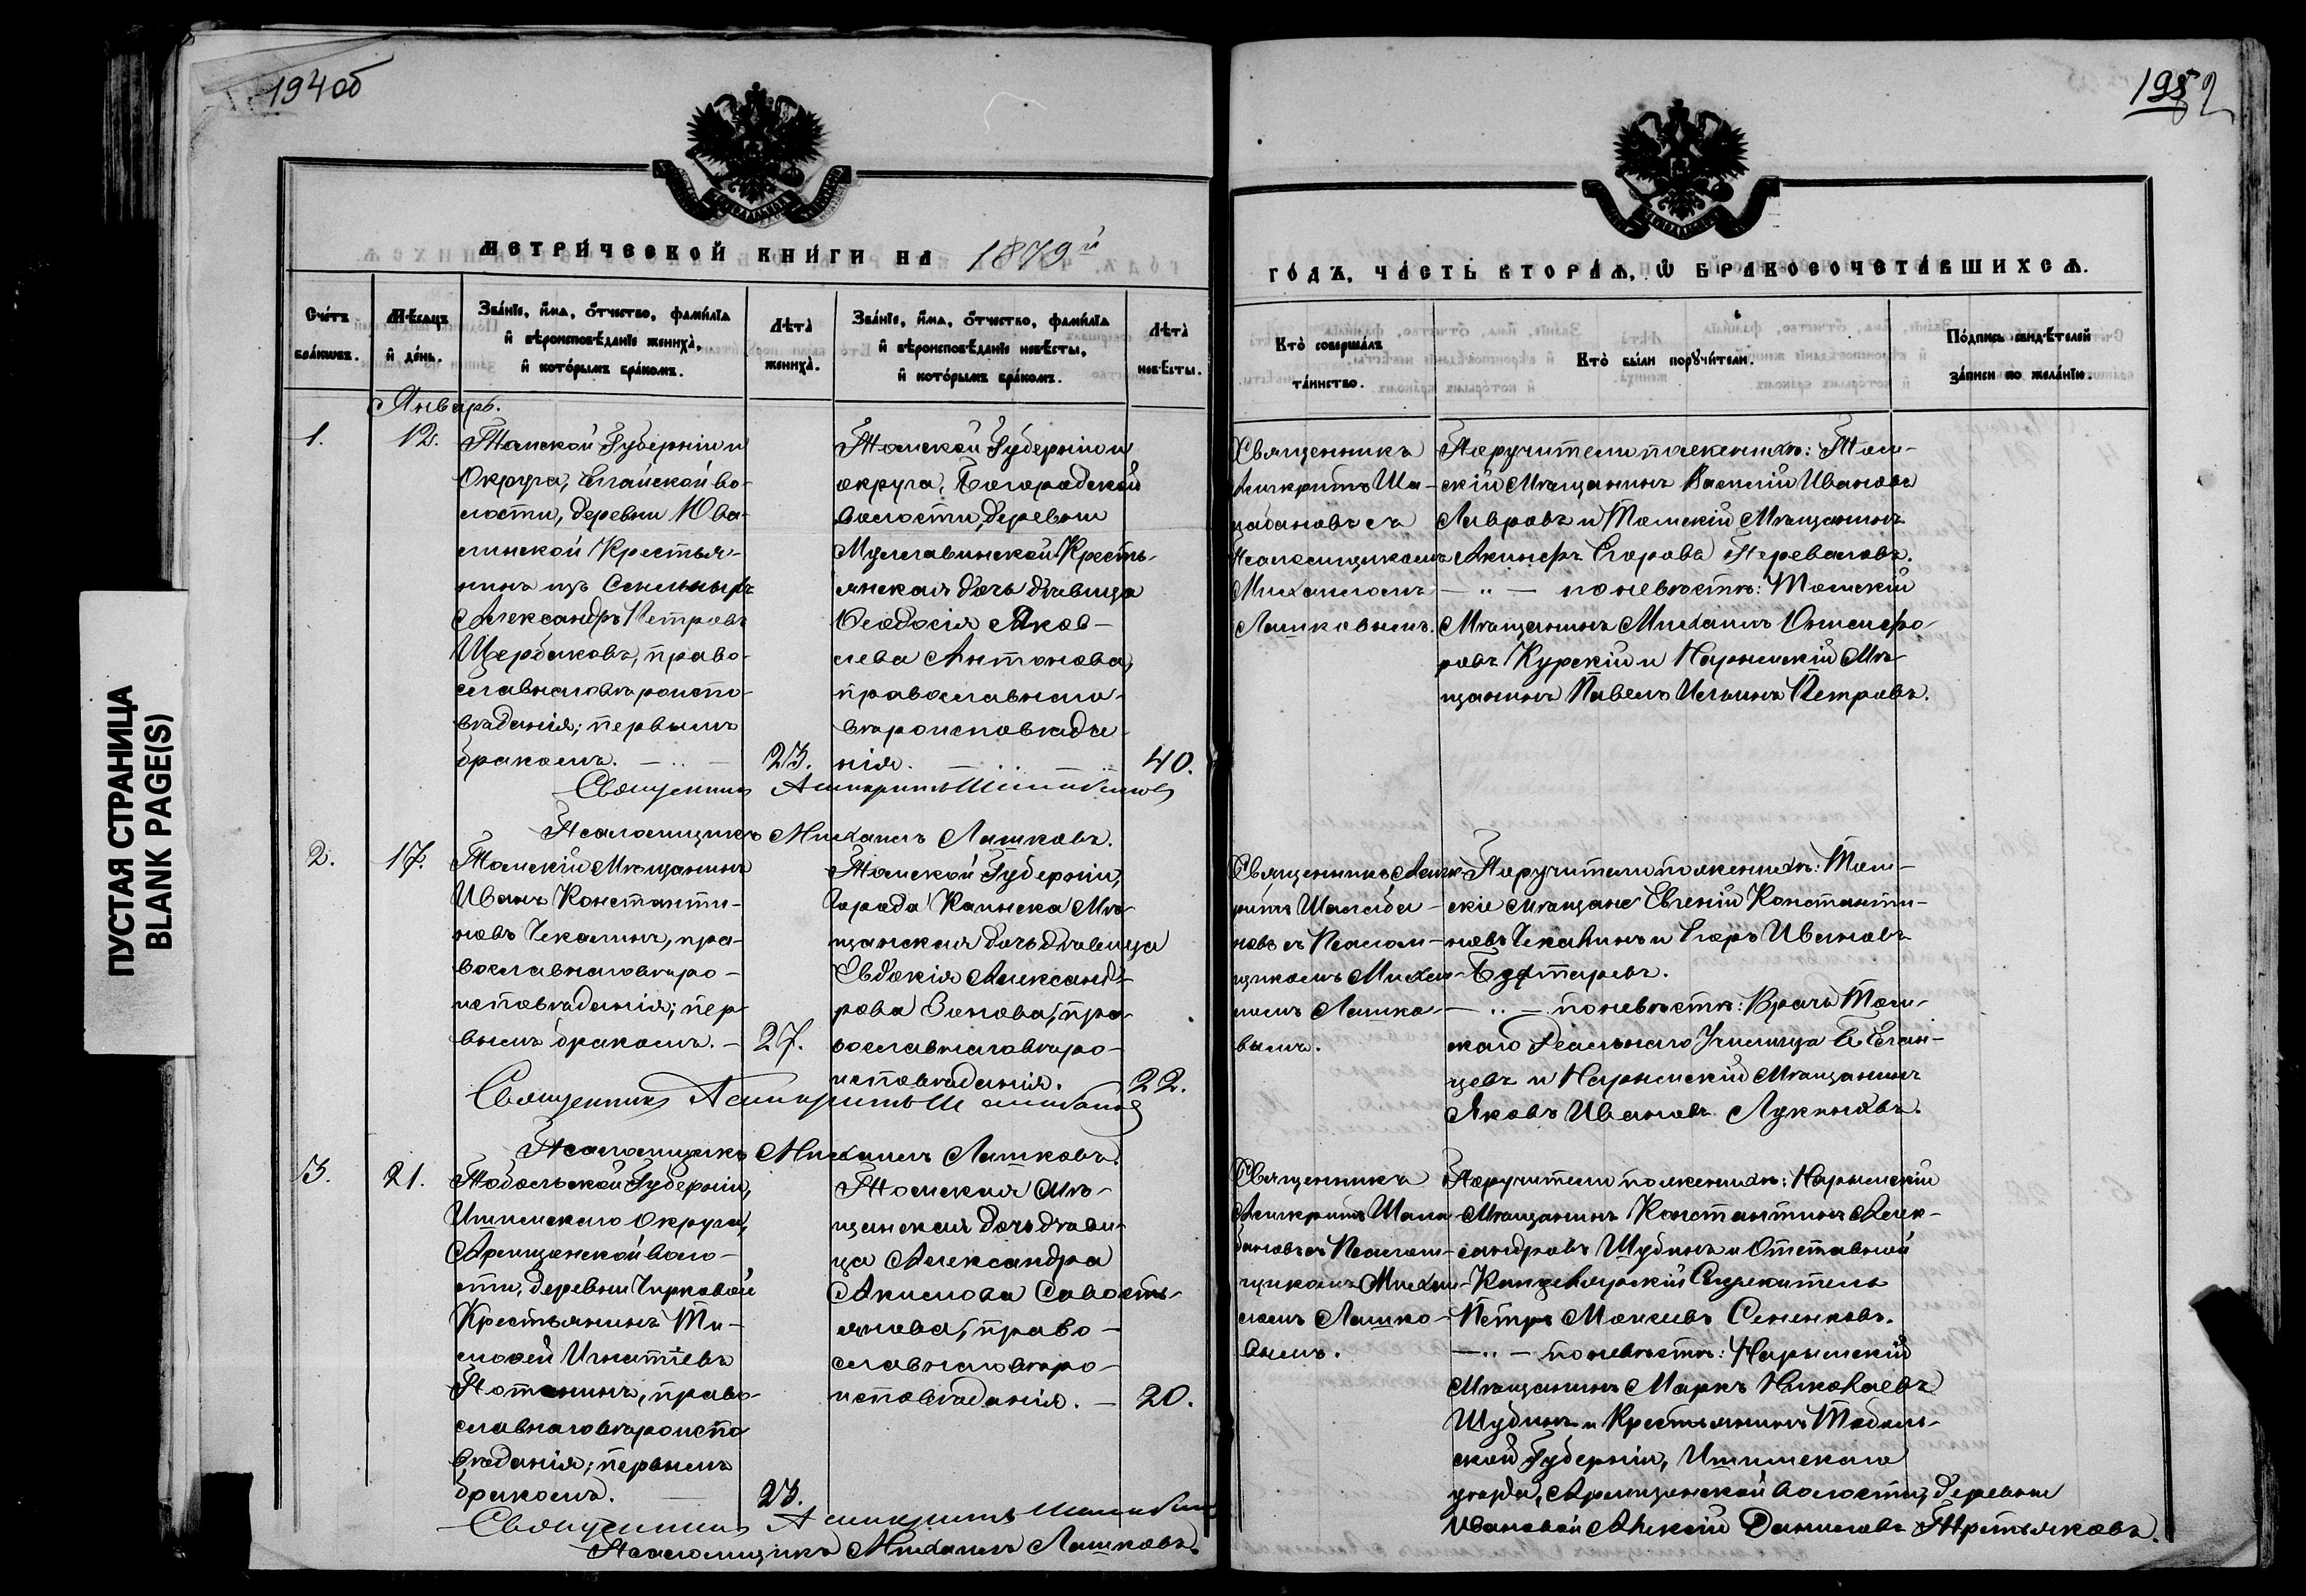 ПУСТАЯ СТРАНИЦА
BLANK PAGE(S)
194об
МЕТРИ́ЧЕСКОЙ КНИ́ГИ НА 1879й
Сче́тъ бра́ковъ.
Мѣ́сяцъ и де́нь.
Зва́нїе, и́мя, о́тчество, фами́лїя и вѣроисповѣ́данїе жениха̀, и кото́рымъ бра́комъ.
Лѣта̀ жениха̀.
Зва́нїе, и́мя, о́тчество, фами́лїя и вѣроисповѣ́данїе невѣ́сты, и кото́рымъ бра́комъ.
Лѣта̀ невѣ́сты.
Январь.
1.
12.
Томской Губерніи и
Округа, Елгайской во-
лости, деревни Юва-
линской Крестья-
нинъ изъ Ссыльныхъ
Александръ Петровъ
Щербаковъ, право-
славнаго вѣроиспо-
вѣданія; первымъ
бракомъ.
23.
Томской Губерніи и
округа, Богородской
Волости, деревни
Кресть-
янская дочь дѣвица
Ѳеодосія Яков-
лева Антонова,
православнаго
вѣроисповѣда-
нія.
40.
Священникъ Асинкритъ Шалабановъ
Псаломщикъ Михаилъ Лашковъ.
2.
17.
Томскій Мѣщанинъ
Иванъ Константи-
новъ Чекалинъ, пра-
вославнаго вѣро-
исповѣданія; пер-
вымъ бракомъ. –
27.
Томской Губерніи,
Города Каинска Мѣ-
щанская дочь дѣвица
Евдокія Александ-
рова Зинова, пра-
вославнаго вѣро-
исповѣданія.
22.
Священникъ Асинкритъ Шалабановъ
Псаломщикъ Михаилъ Лашковъ.
3.
21.
Тобольской Губерніи,
Ишимскаго Округа,
Армизонской Воло-
сти, деревни Чирковой
Крестьянинъ Ти-
моѳей Игнатіевъ
Потанинъ, право-
славнаго вѣроиспо-
вѣданія; первымъ
бракомъ.
23.
Томская Мѣ-
щанская дочь дѣви-
ца Александра
Акимова Савость-
янова, право-
славнаго вѣро-
исповѣданія. –
20.
Священникъ Асинкритъ Шалабановъ
Псаломщикъ Михаилъ Лашковъ.
ГО́ДЪ, ЧА́СТЬ ВТОРА́Я, Ѡ БРАКОСОЧЕТА́ВШИХСЯ.
Кто̀ соверша́лъ та́инство.
Кто̀ бы́ли поручи́тели.
По́дпись свидѣ́телей за́писи по жела́нїю.
Священникъ
Асинкритъ Ша-
лабановъ съ
Псаломщикомъ
Михаиломъ
Лашковымъ.
Поручители по женихѣ: Том-
скій Мѣщанинъ Василій Ивановъ
Лавровъ и Томскій Мѣщанинъ
Егоровъ Переваловъ.
– " – по невѣстѣ: Томскій
Мѣщанинъ Михаилъ Онисифо-
ровъ Курскій и Нарымскій Мѣ-
щанинъ Павелъ Ильинъ Петровъ.
Священникъ Асинк-
ритъ Шалаба-
новъ съ Псалом-
щикомъ Михаи-
ломъ Лашко-
вымъ.
Поручители по женихѣ: Том-
скіе мѣщане Евгеній Константи-
новъ Чекалинъ и Егоръ Ивановъ
– " – по невѣстѣ: Врачъ Том-
скаго Реальнаго Училища
и Нарымскій Мѣщанинъ
Яковъ Ивановъ Лукиновъ.
Священникъ
Асинкритъ Шала-
бановъ съ Псалом-
щикомъ Михаи-
ломъ Лашко-
вымъ.
Поручители по женихѣ: Нарымскій
Мѣщанинъ Константинъ Алек-
сандровъ Шубинъ и Отставной
Канцелярскій Служитель
Петръ Моисеевъ Сененковъ.
– " – по невѣстѣ: Нарымскій
Мѣщанинъ Маркъ Николаевъ
Шубинъ и Крестьянинъ Тоболь-
ской Губерніи, Ишимскаго
уѣзда, Армизонской Волости, деревни
Ивановой Алексій Даниловъ Третьяковъ.